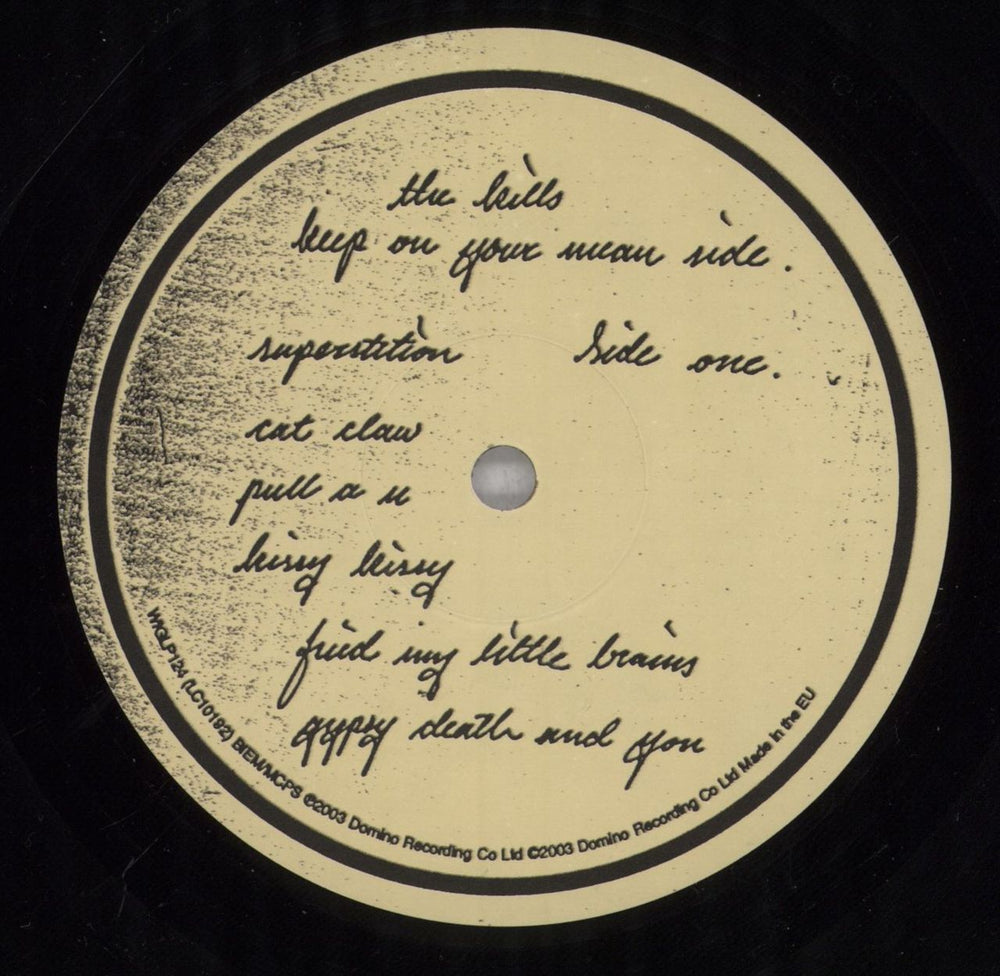 the kills
keep on your mean side.
superstition Side one.
cat claw
pull a u
kissy kissy
fried my little brains
gypsy death and you
WIGLP124 (LC10192) BIEM/MCPS ℗2003 Domino Recording Co Ltd ©2003 Domino Recording Co Ltd Made in the EU